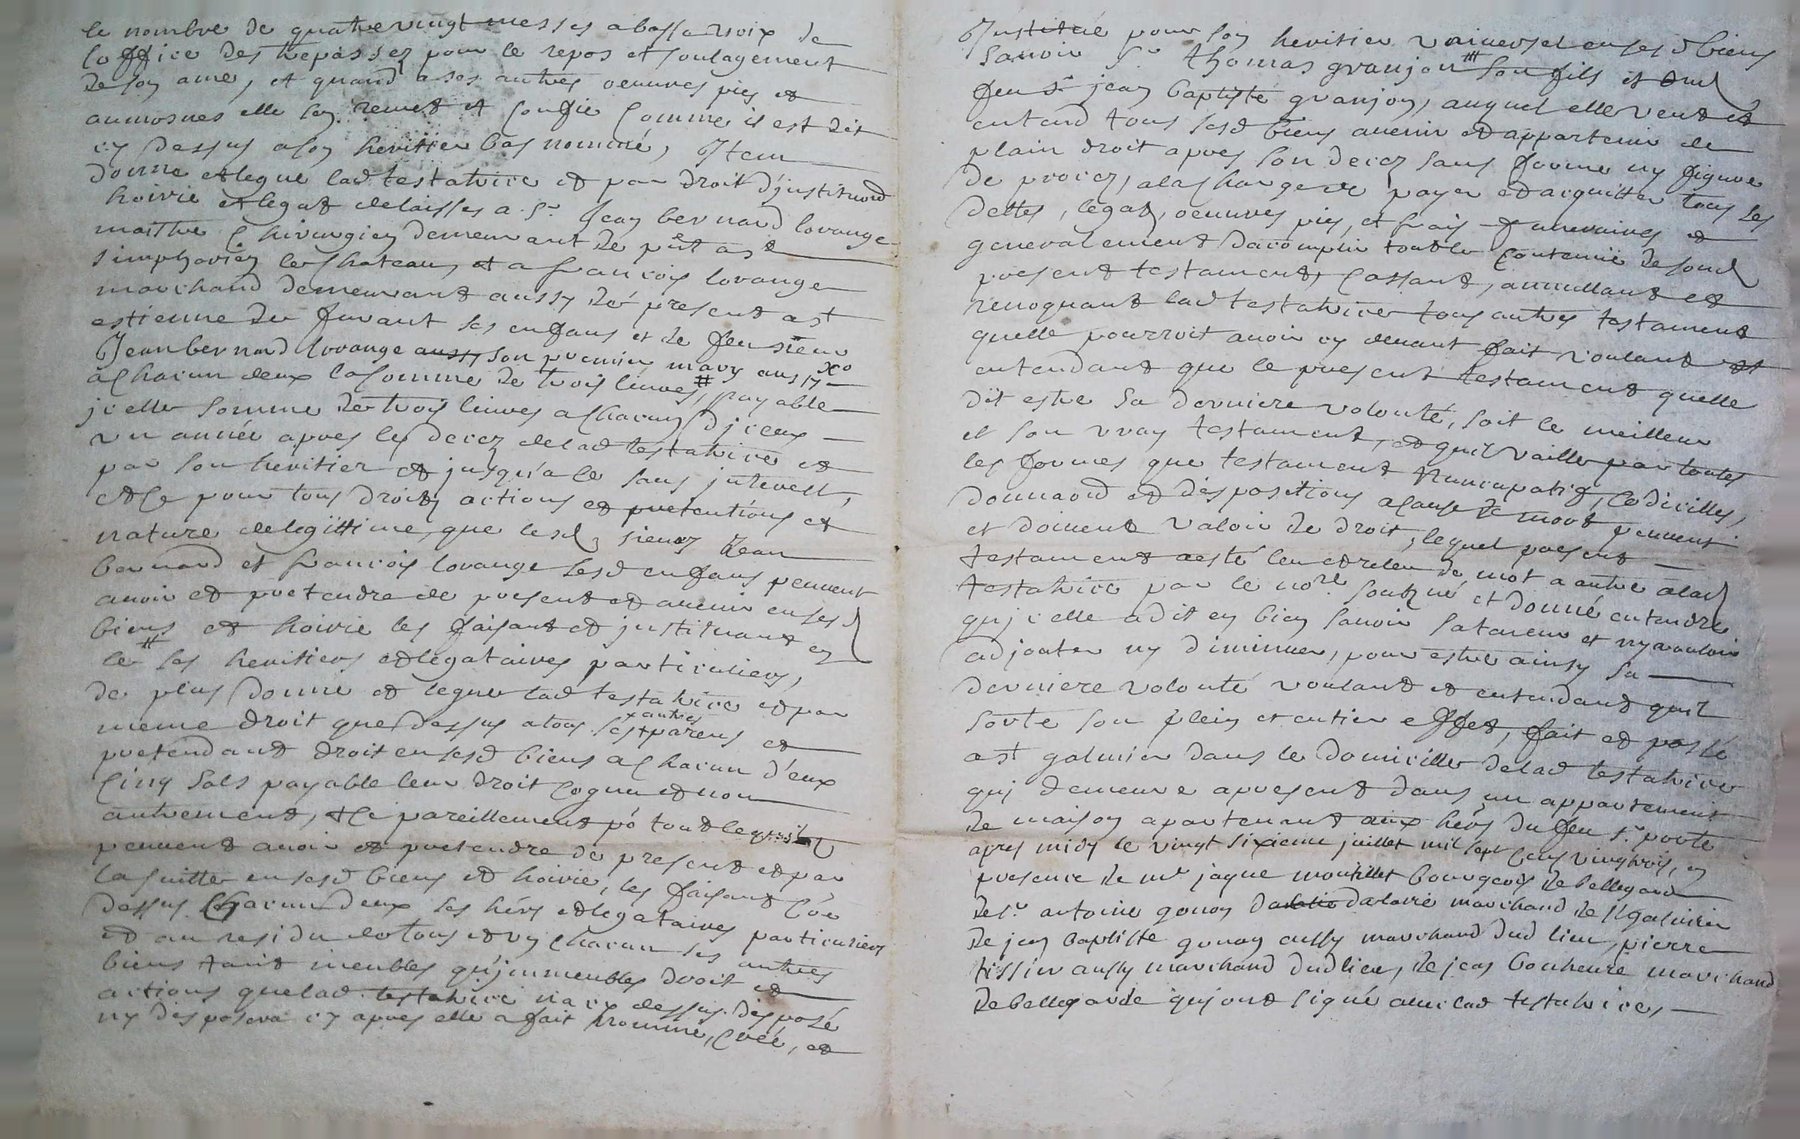 le nombre de quatre vingt messes a basse voix de
loffice des trepassez pour le repos et soulagement
de son ame, et quand a ses autres oeuvres pies et
aumosnes elle sen remet et confie comme il est dit
cy dessus a son heritier bas nommé, Item
donne et legue lad testatrice et par droit d'jnstitu͠on
hoirie et legat delaisse a Sr Jean bernard lorange
maitre chirurgien demeurant de pñt a St
simphorien le chateau, et a francois lorange
marchand demeurant aussy de present a st
estienne de furant ses enfans et de feu sieur
Jean bernard lorange aussy son premier mary aussy
a chacun deux la somme de trois livres # payable
jcelle somme de trois livres a chacun d'jceux
un année apres les decez de lad testatrice et
par son heritier et jusqu'a ce sans jnterest,
et ce pour tous droits actions et pretentions et
nature de legittime, que lesd sieurs Jean
bernard et francois lorange sesd enfans peuvent
avoir et pretendre de present et avenir en sesd
biens et hoirie les faisant et jnstituant en
le # ses heritiers et legataires particuliers,
de plus donne et legue lad testatrice et par
meme droit que dessus a tous ses + parens et
+ autres
pretendant droit en sesd biens a chacun d'eux
cinq sols payable leur droit cognu et non
autrement, et ce pareillement po tout le
peuvent avoir et pretendre de present et par
la suitte en sesd biens et hoirie, les faisant co͠e
dessus chacun deux ses hers et legataires particuliers
et au residu de tous et un chacun ses autres
biens tant meubles qu'jmmeubles droit et
actions que lad testatrice na cy dessus disposé
ny disposera cy apres elle a fait nommé, créé, et
Jnstitué pour son heritier universel en sesd biens
savoir Sr thomas granjon # son fils et dud
feu Sr jean baptiste granjon, auquel elle veut et
entend tous sesd biens avenir et appartenir de
plain droit apres son decez sans forme ny figure
de procez, a la charge de payer et acquitter tous ses
dettes, legats, oeuvres pies, et frais funeraires et
generalement dacomplir tout le contenu de sond
present testament, cassant, annullant et
revoquant lad testatrice tous autres testament
quelle pourroit avoir cy devant fait voulant et
entendant que le present testament quelle
dit estre sa derniere volonté, soit le meilleur
et son vray testament, et quil vaille par toutes
les formes que testament nuncupatif, codicilles,
donna͠on et dispositions a cause de mort peuvent
et doivent valoir de droit, lequel present
testament a esté leu et releu de mot a autre a lad
testatrice par le nore soubzné et donné entendre
qu'jcelle a dit en bien savoir sa teneur et ny vouloir
adjouter ny diminuer, pour estre ainsy sa
derniere volonté voulant et entendant quil
sorte son plein et entier effet, fait et passé
a st galmier dans le domicille de lad testatrice
quj demeure a present dans un appartement
de maison apartenant aux hers du feu Sr porte
apres midy le vingt sixieme juillet mil sept cens vingtrois, en
presence de mr jaque montillet bourgeois de bellegarde
de Sr antoine gonon dalaire marchand de St galmier
de jean baptiste gonon aussy marchand dud lieu, pierre
tissier aussy marchand dud lieu, de jean bonheure marchand
de bellegarde qujont signé avec lad testatrice,